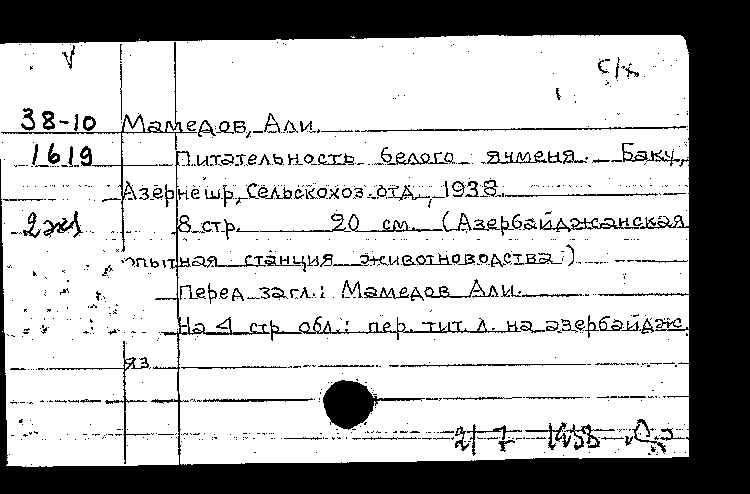 V
с/х
38-10 Мамедов, Али.
1619 Питательность белого ячменя. Баку,
Азернешр, Сельскохоз. отд., 1938.
2 экз 8 стр. 20 см. (Азербайджанская
опытная станция животноводства)
Перед загл.: Мамедов Али.
На 4 стр. обл.: пер. тит. л. на азербайдж.
яз.
21 7 1938